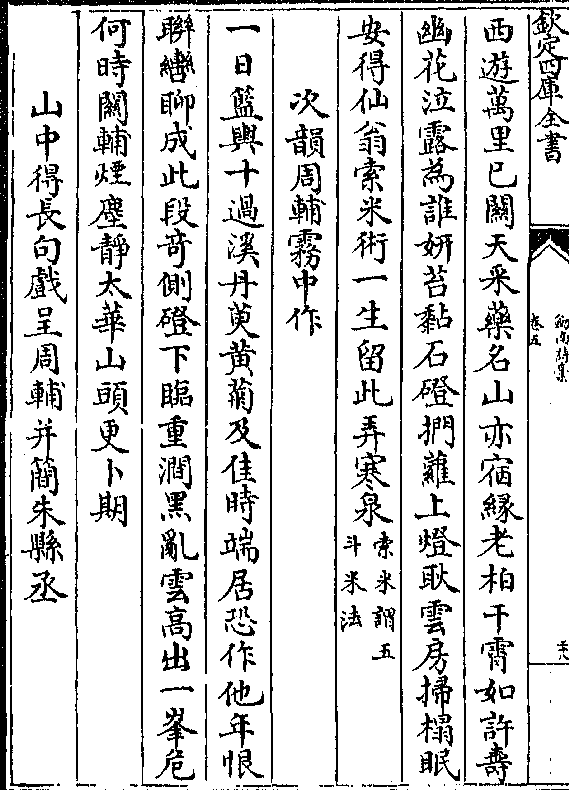 欽定四庫全書
劍南詩集
卷五
西遊萬里已關天采藥名山亦宿緣老柏干霄如許壽
幽花泣露為誰妍苔黏石磴捫蘿上燈耿雲房掃榻眠
安得仙翁索米術一生留此弄寒泉索米謂五斗米法
次韻周輔霧中作
一日籃輿十過溪丹萸黄菊及佳時端居恐作他年恨
聯轡聊成此段奇側磴下臨重澗黑亂雲高出一峯危
何時關輔煙塵靜太華山頭更卜期
山中得長句戲呈周輔并簡朱縣丞